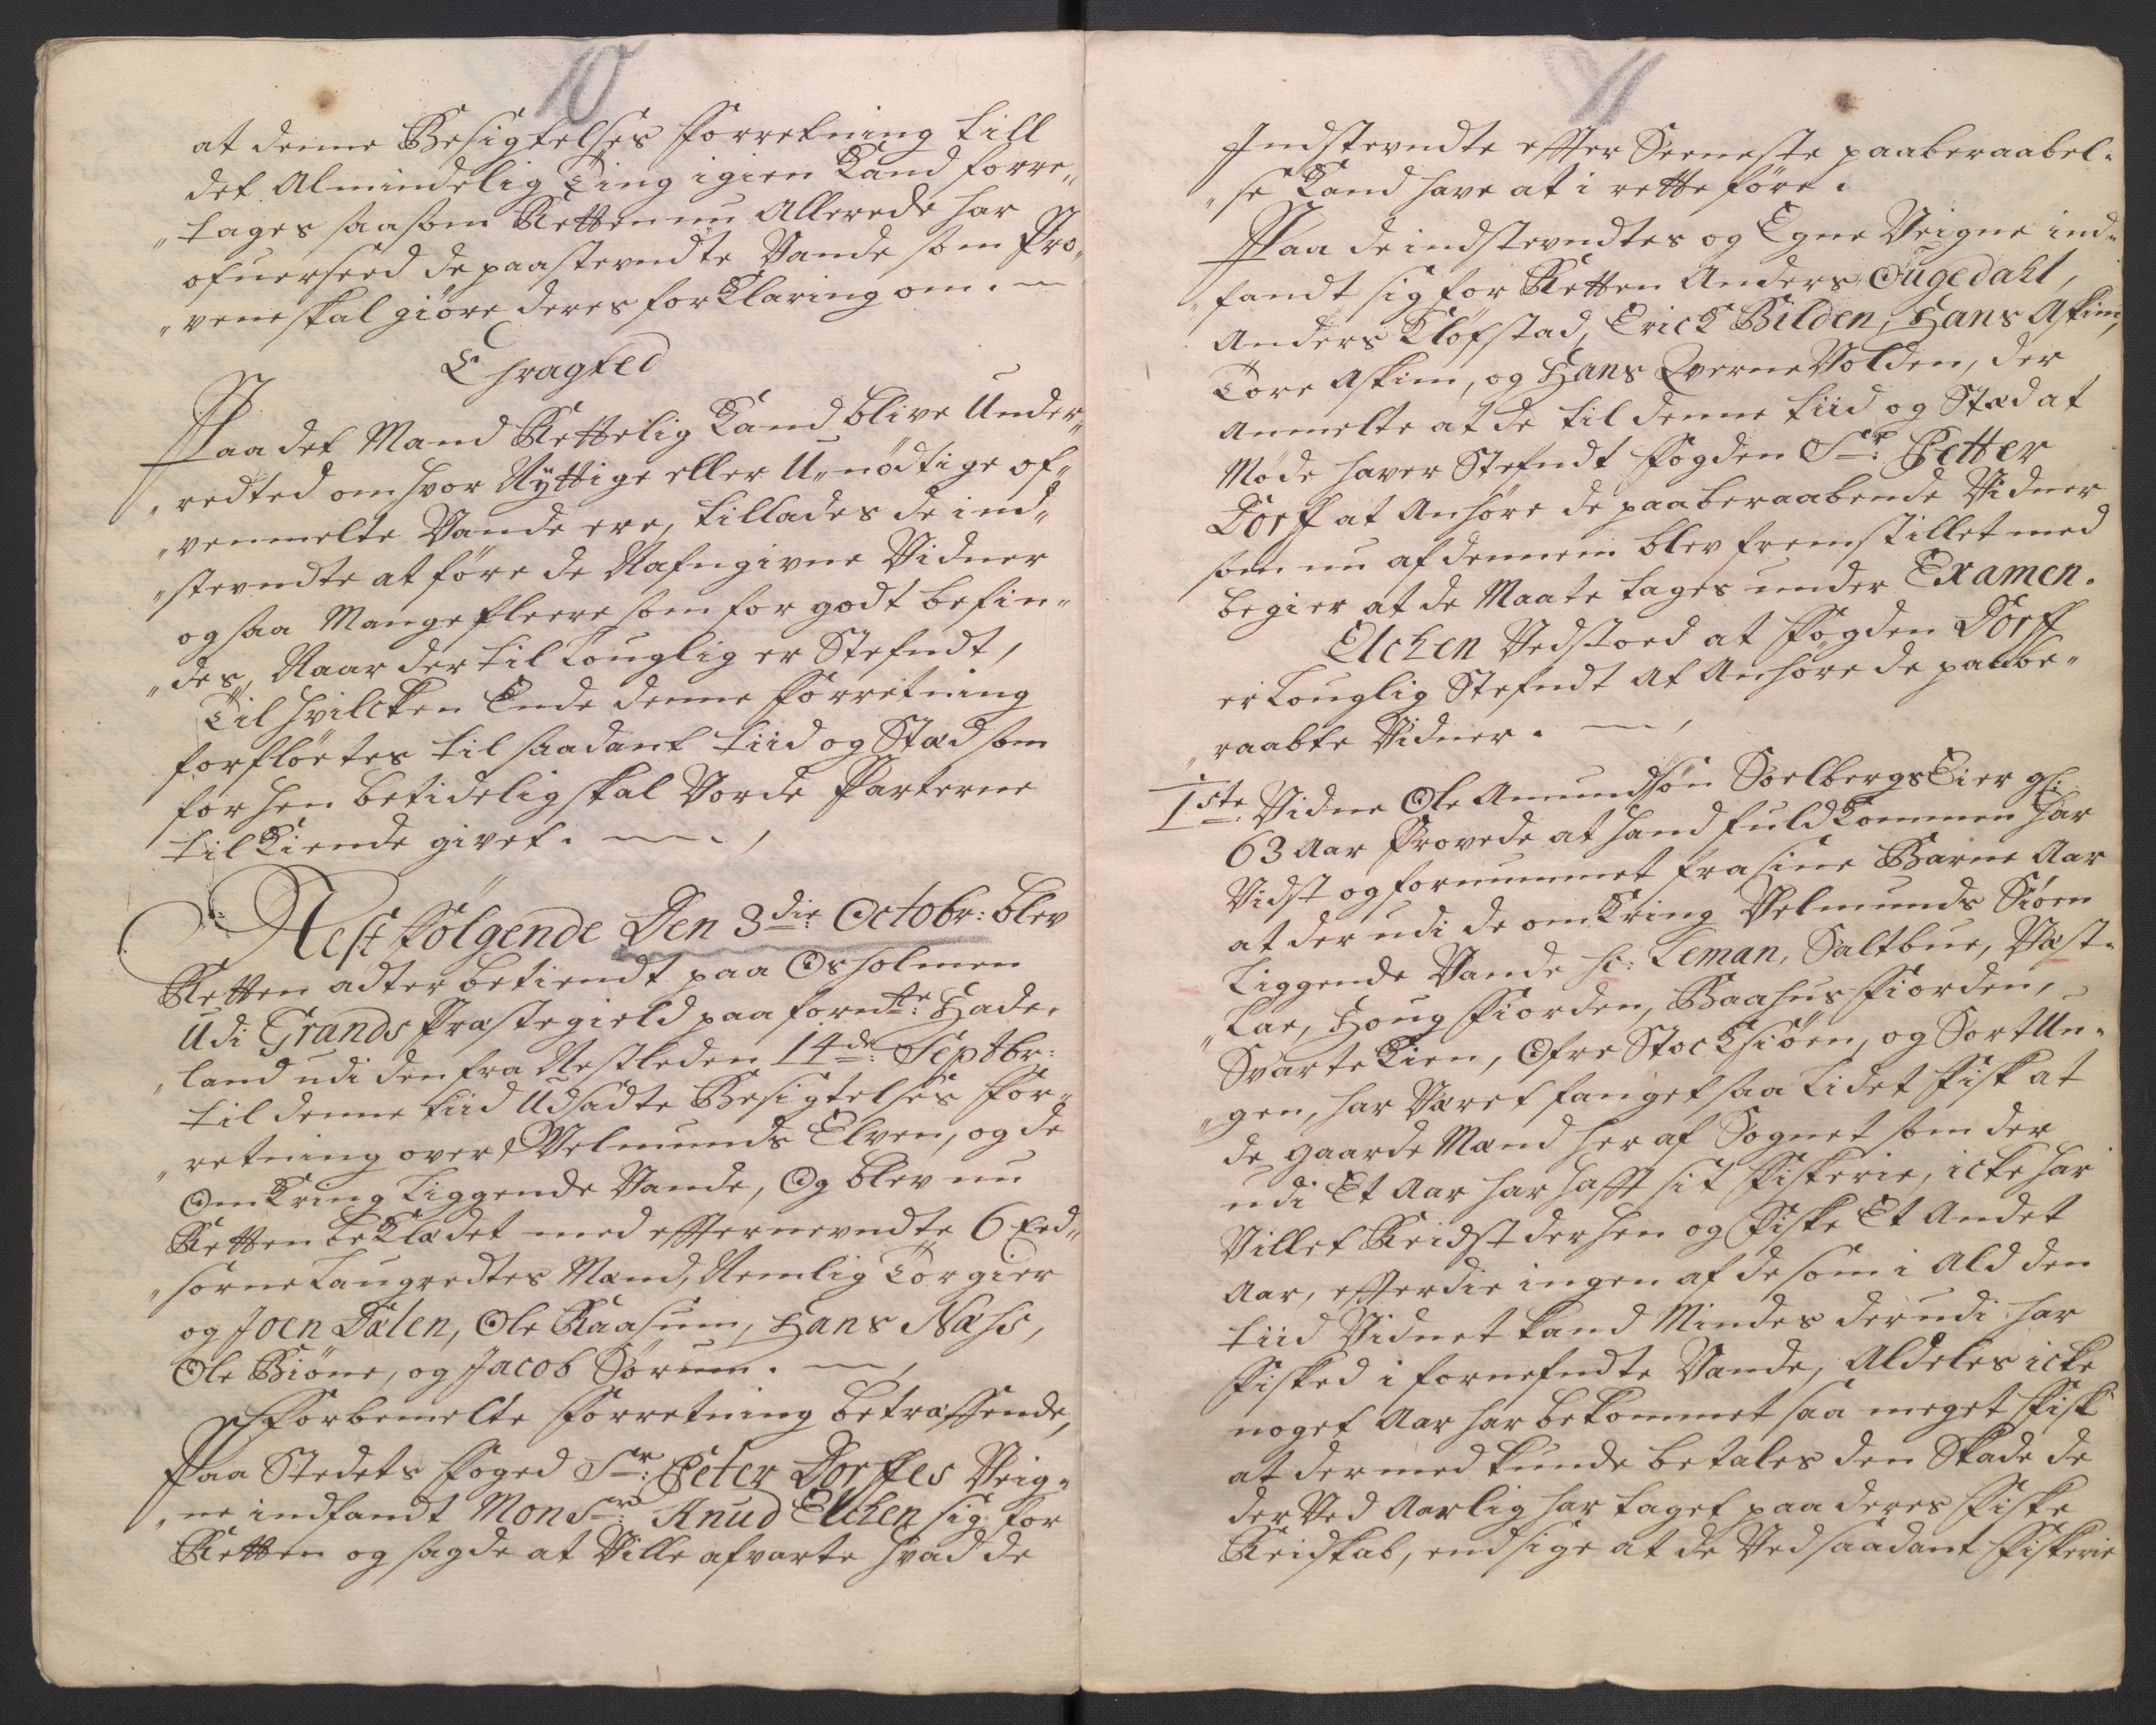 10
at denne Besigtelses Forretning till
det Almindelig Ting igien Kand forre„
„tages saasom Retten nu Allerede har
ofuerseed de paastevndte Vande som Pro„
„vene skal giöre deres forklaring om. —
Eragted
Paa det Mand Rettelig Kand blive Under„
„redted om hvor Nyttige eller U„nödtige of„
„venmelte Vande ere, tillades de ind„
„stevndte at före de Nafngivne Vidner
og saa Mange fleere som for godt befin„
„des, Naar der til Louglig er Stefndt,
Til hvilcken Ende denne Forretning
forfløttes til saadant tiid og Stæd som
for hen betidelig skal Vorde Parterne
til Kiende givet. —
Nest Følgende Den 3die Octobr: blev
Retten adter betiendt paa Osholmen
Udi Grands Præstegield paa fornte: Hade„
„land udi den fra Nestleden 14de: Septbr:
til denne tiid Udsadte Besigtelses For„
„retning over Velmunds Elven, og de
Omkring Liggende Vande, Og blev nu
Retten beklædet med effternevndte 6 Eed„
„sorne Laugredtes Mænd, Nemlig Torgier
og Joen Dælen, Ole Raasum, Hans Næss,
Ole Biöne, og Jacob Sörum. —
Forbemelte Forretning betreffende,
Paa Stedets Foged Sr: Peter Dorffes Veig„
„ne indfandt Monsr: Knud Elchen sig for
Retten og sagde at Ville afvarte hvad de
11
Indstevndte effter Seeneste paaberaabel„
„se Kand have at i rette före.
Paa de indstevndtes og Egne Veigne ind„
„fandt sig for Retten Anders Ougedahl,
Anders Klöfstad, Erick Bilden, Hans Askim,
Tore Askim, og Hans QverneVolden, der
Anmelte at de til denne tiid og Stæd at
Møde haver Stefndt Fogden Sr: Petter
Dorff at Anhöre de paaberaabende Vidner
som nu af dennem blev fremstillet med
begier at de Maate tages under Examen.
Elchen Vedstoed at Fogden Dorff
er Louglig Stefndt At Anhöre de paabe„
„raabte Vidner. —
1ste: Vidne Ole Amundsön Soelbergs Eier gl:
63 Aar Provede at hand fuldkommen har
Vidst og fornummet fra sine Barne Aar
at der udi de omkring Velmunds Siöen
Liggende Vande sc: Leman, Saltbue, Væst„
„Lae, Houg Fiorden, Baahus Fiorden,
Svarte Kien, Ofre Stocksiöen, og Sort Un„
„gen, har Været fanget saa Lidet Fisk at
de gaarde Mænd her af Sognet som der
udi Et Aar har hafft sit Fiskerie, icke har
Villet Reidst der hen og Fiske Et Andet
Aar, efferdie ingen af de som i Ald den
tiid Vidnet kand Mindes der udi har
Fisked i fornefndte Vande, Aldeles icke
noget Aar har bekommet saa meget Fisk
at der med kunde betales den Skade de
der Ved Aarlig har taget paa deres Fiske
Reidskab, end sige at de Ved saadant Fiskerie